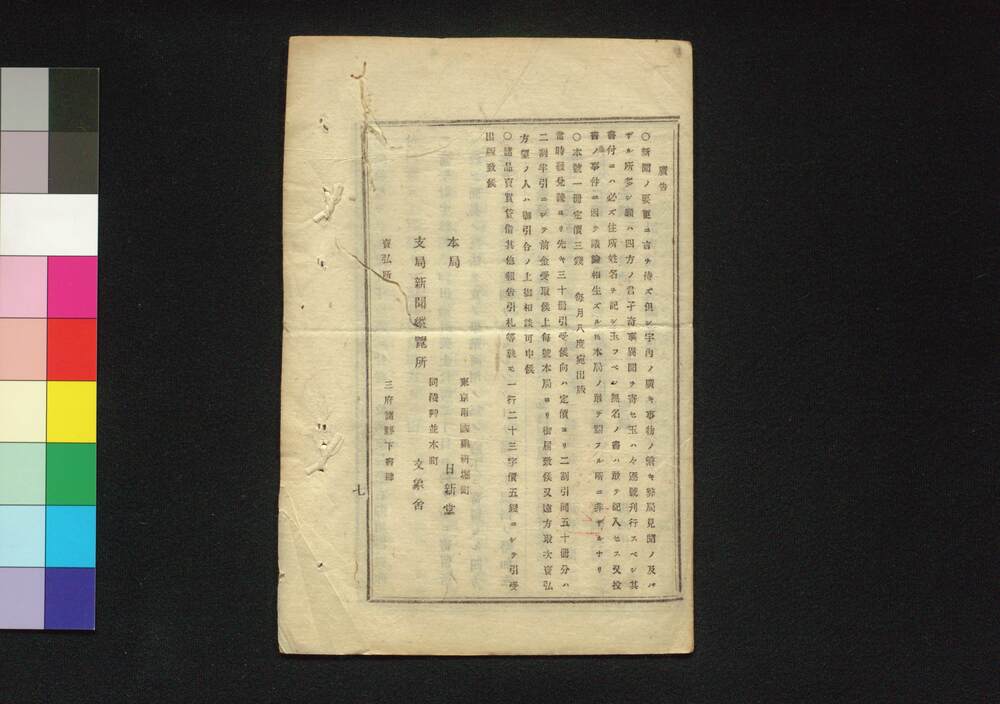 廣告
○新聞ノ要更ニ言ヲ待ズ但シ宇内ノ廣キ事物ノ繁キ弊局見聞ノ及バ
ザル所多シ願ハ四方ノ君子奇事異聞ヲ寄セ玉ハヾ逐號刊行スベシ其
書付ニハ必ズ住所姓名ヲ記シ玉フベシ無名ノ書ハ敢テ記入セス又投
書ノ事件ニ因テ議論相生ズルモ本局ノ敢テ關フル所ニ非ザルナリ
○本號一冊定價三錢 毎月八度宛出版
當時發兌後ヨリ先キ三十冊引受候向ハ定價ヨリ二割引同五十冊分ハ
二割半引ニシテ前金受取候上毎號本局ヨリ御届致候又遠方取次賣弘
方望ノ人ハ御引合ノ上御相談可申候
○諸品賣買貸借其他報告引札等就モ一行二十三字價五錢ニシテ引受
出版致候
本局 東京兩國 日新堂
支局新聞縱覽所 同 並木町 文象舍
賣弘所 三府諸縣下書肆
七